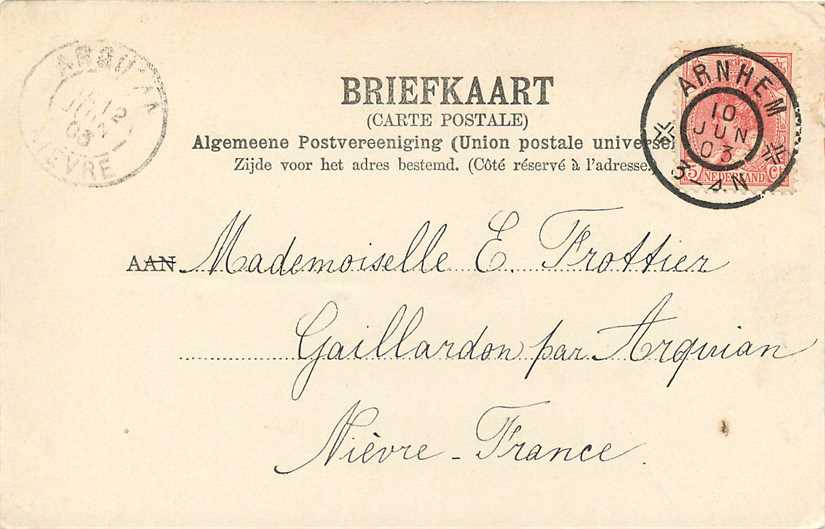 BRIEFKAART
(CARTE POSTALE)
Algemeene Postvereeniging (Union postale universel
Zijde voor het adres bestemd. (Côté réservé à l'adresse.
ARNHEM
10
JUN
03
3-4N
5 NEDERLAND Ct
12
03
NIÈVRE
AAN Mademoiselle E. Trottier
Gaillardon par Arquian
Nièvre - France.